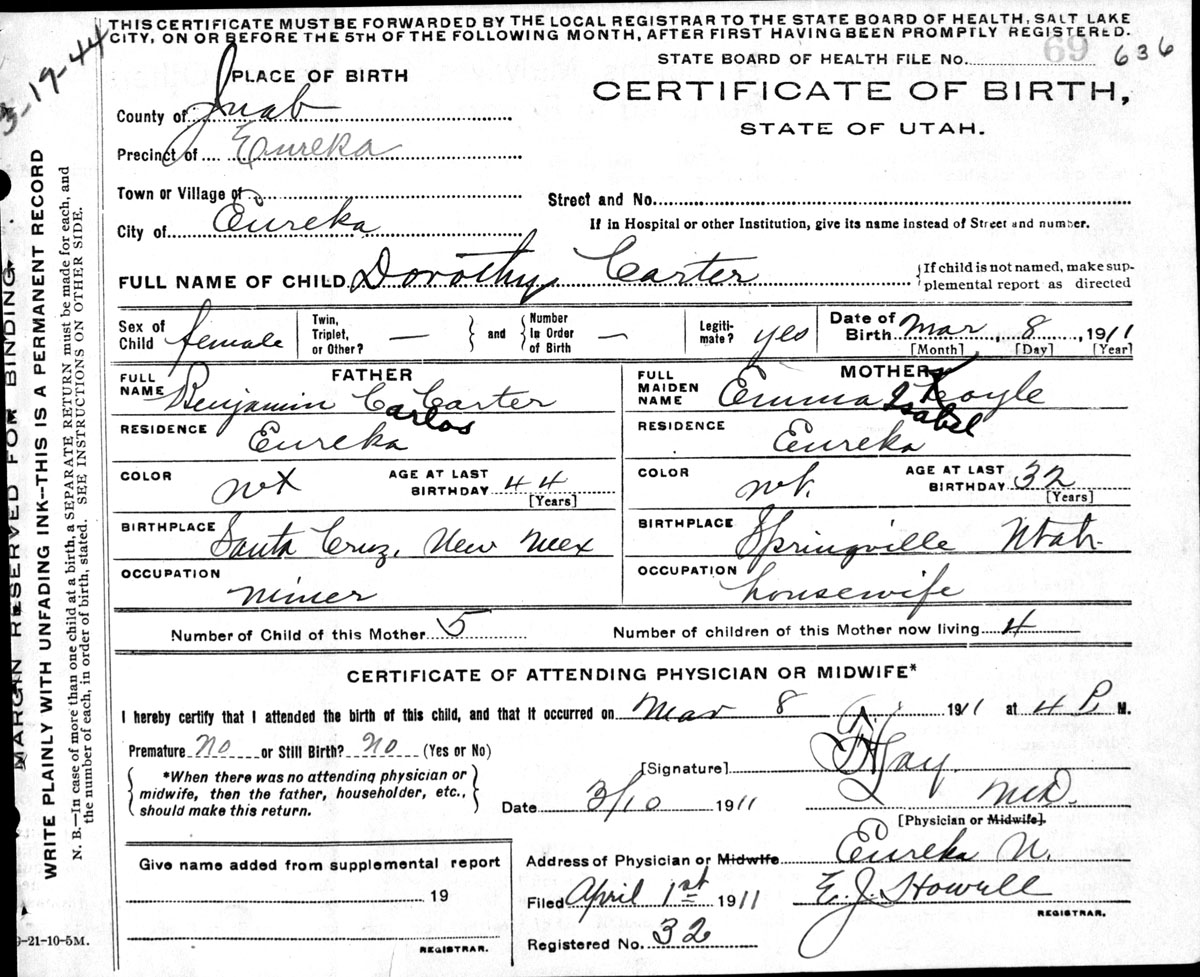 THIS CERTIFICATE MUST BE FORWARDED BY THE LOCAL REGISTRAR TO THE STATE BOARD OF HEALTH, SALT LAKE
CITY, ON OR BEFORE THE 5TH OF THE FOLLOWING MONTH, AFTER FIRST HAVING BEEN PROMPTLY REGISTERED.
3-19-44
STATE BOARD OF HEALTH FILE No. 69 636
PLACE OF BIRTH
CERTIFICATE OF BIRTH,
STATE OF UTAH.
County of Juab
Precinct of Eureka
Town or Village of
Street and No.
City of Eureka
If in Hospital or other Institution, give its name instead of Street and number.
FULL NAME OF CHILD Dorothy Carter
{If child is not named, make sup-
plemental report as directed
Sex of Child female Twin, Triplet, or Other? — } and { Number In Order of Birth — Legiti-mate? yes Date of Birth Mar 8, 1911
[Month] [Day] [Year]
FATHER
MOTHER
FULL NAME Benjamin C Carter
Carlos
FULL MAIDEN NAME Emma Koyle
Isabel
RESIDENCE Eureka
RESIDENCE Eureka
COLOR wt AGE AT LAST BIRTHDAY 44 [Years]
COLOR wt. AGE AT LAST BIRTHDAY 32 [Years]
BIRTHPLACE Santa Cruz, New Mex
BIRTHPLACE Springville Utah
OCCUPATION miner
OCCUPATION housewife
Number of Child of this Mother 5 Number of children of this Mother now living 4
CERTIFICATE OF ATTENDING PHYSICIAN OR MIDWIFE*
I hereby certify that I attended the birth of this child, and that it occurred on Mar 8 1911 at 4 P. M.
Premature No or Still Birth? No (Yes or No)
{*When there was no attending physician or
midwife, then the father, householder, etc.,
should make this return.}
[Signature]
M.D.
Date 3/10 1911
[Physician or Midwife].
Address of Physician or Midwife Eureka U.
Give name added from supplemental report
19
REGISTRAR.
Filed April 1st 1911 E. J. Howell
REGISTRAR.
Registered No. 32
MARGIN RESERVED FOR BINDING.
WRITE PLAINLY WITH UNFADING INK--THIS IS A PERMANENT RECORD
N. B.—In case of more than one child at a birth, a SEPARATE RETURN must be made for each, and
the number of each, in order of birth, stated. SEE INSTRUCTIONS ON OTHER SIDE.
9-21-10-5M.